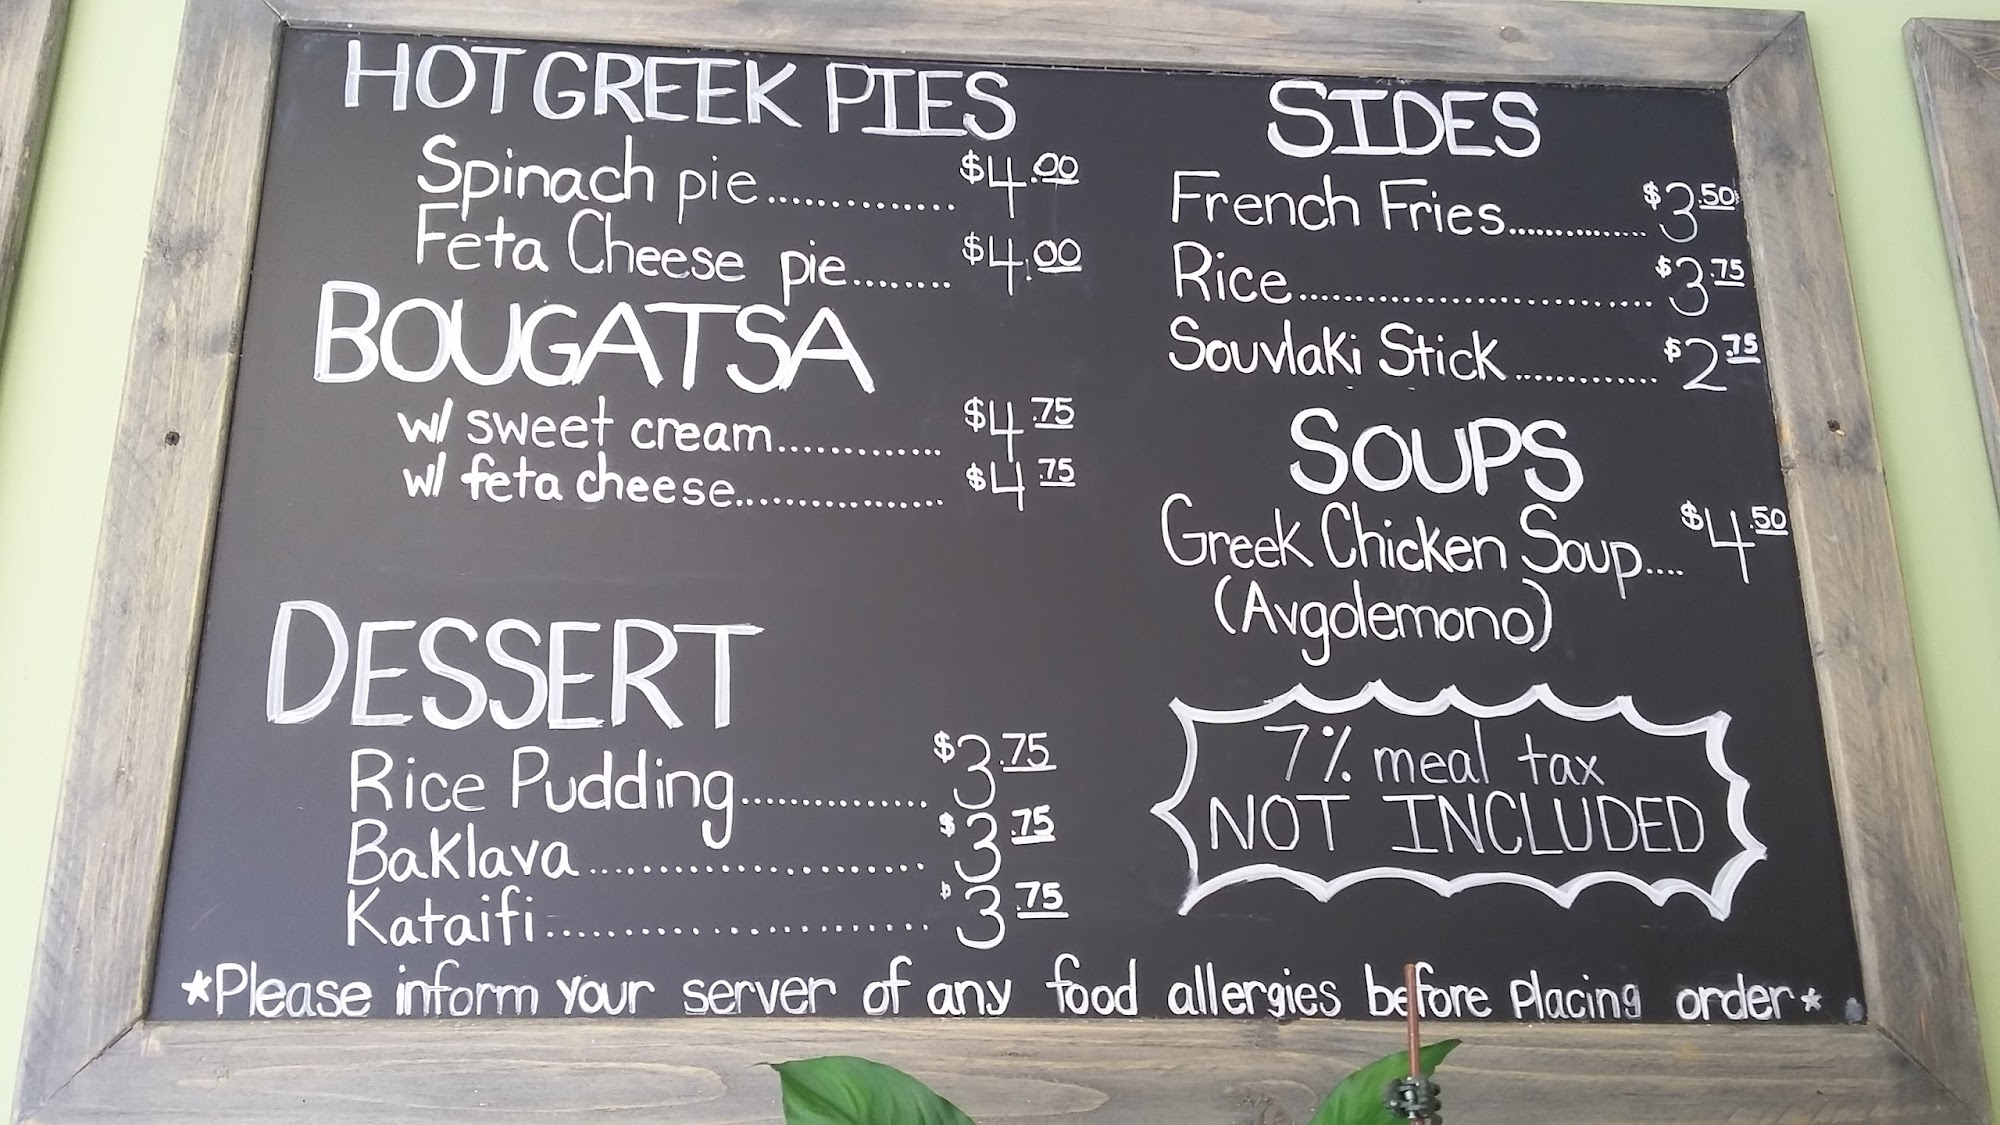 HOT GREEK PIES
Spinach pie.............. $4.00
Feta Cheese pie........ $4.00
BOUGATSA
w/ sweet cream............. $4.75
w/ feta cheese................ $4.75
DESSERT
Rice Pudding............... $3.75
Baklava........................ $3.75
Kataifi........................ $3.75
SIDES
French Fries............. $3.50
Rice.............................. $3.75
Souvlaki Stick............ $2.75
SOUPS
Greek Chicken Soup.... $4.50
(Avgolemono)
7% meal tax
NOT INCLUDED
*Please inform your server of any food allergies before placing order*